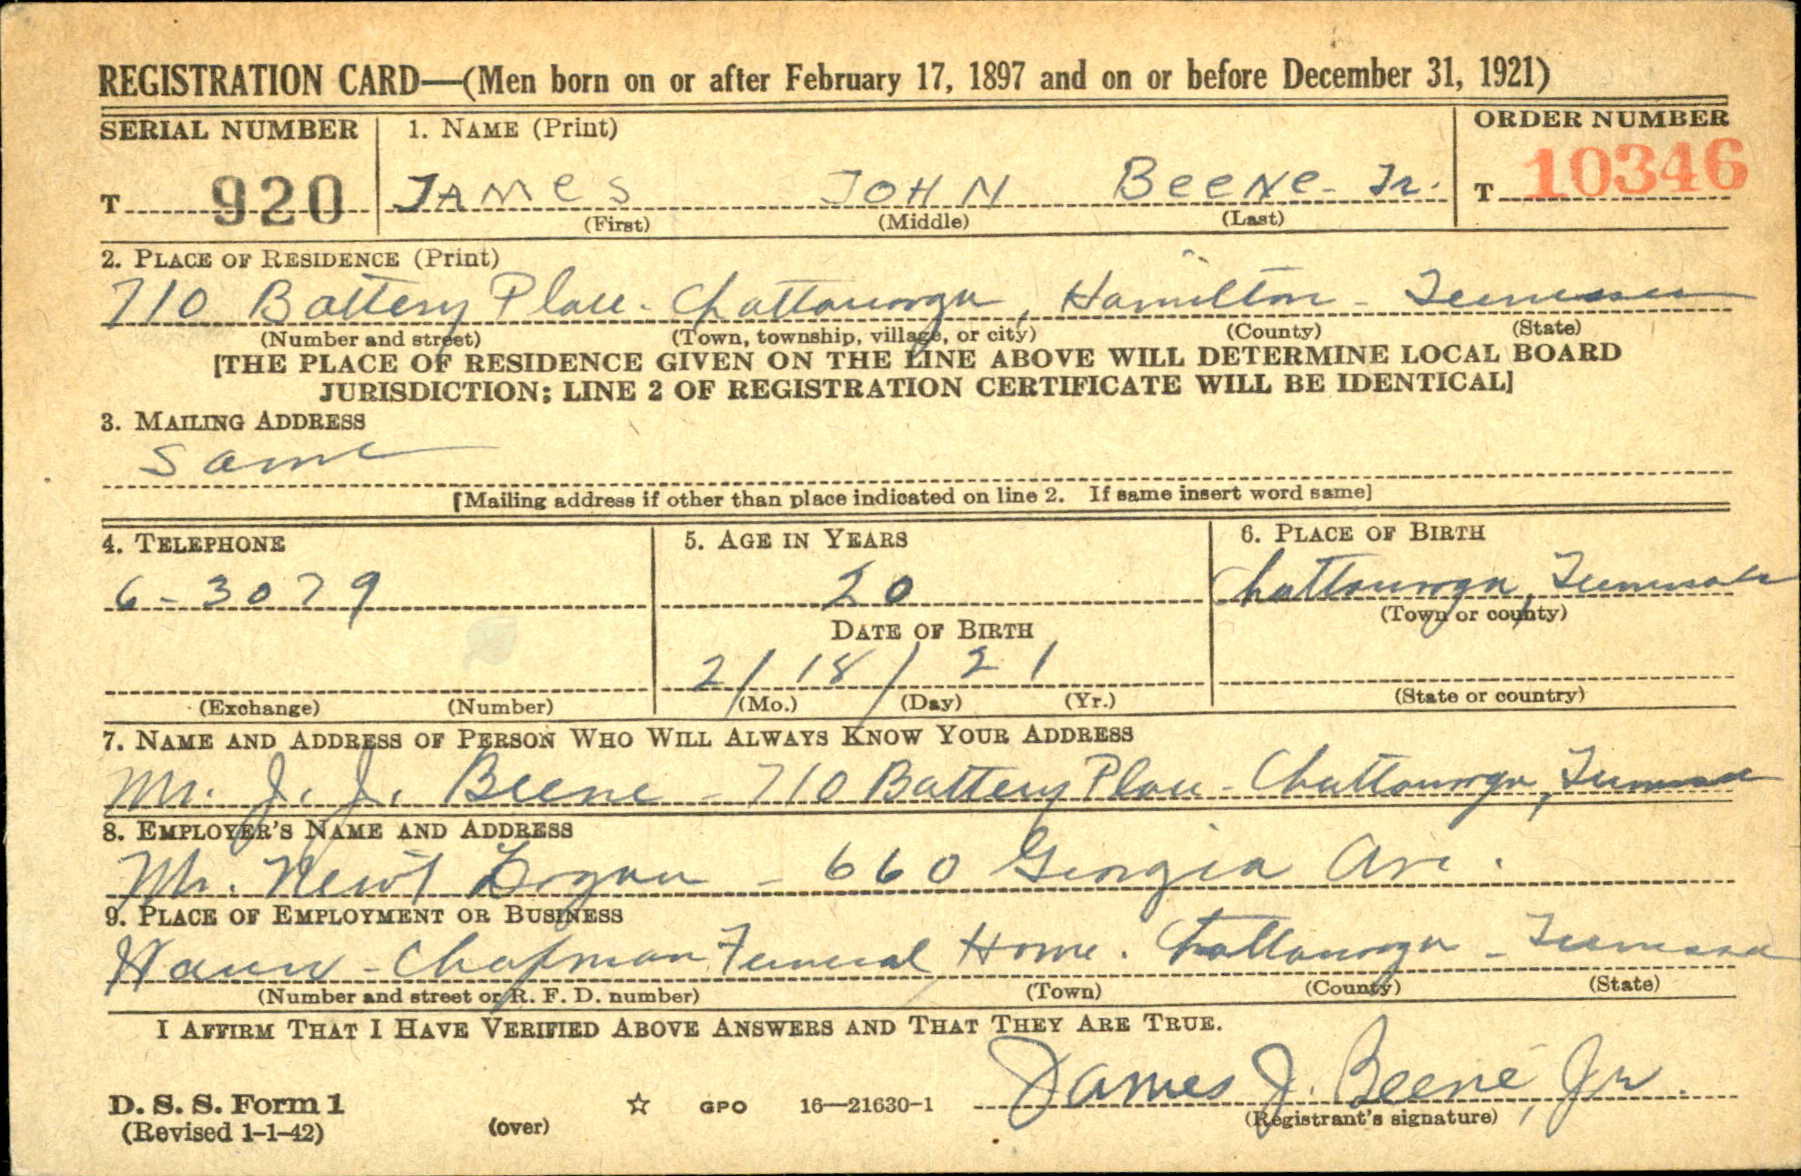 REGISTRATION CARD—(Men born on or after February 17, 1897 and on or before December 31, 1921)
SERIAL NUMBER 1. NAME (Print) ORDER NUMBER
T 920 JAMES JOHN BEENE Jr. T 10346
(First) (Middle) (Last)
2. PLACE OF RESIDENCE (Print)
710 Battery Place - Chattanooga, Hamilton - Tennessee
(Number and street) (Town, township, village, or city) (County) (State)
[THE PLACE OF RESIDENCE GIVEN ON THE LINE ABOVE WILL DETERMINE LOCAL BOARD
JURISDICTION; LINE 2 OF REGISTRATION CERTIFICATE WILL BE IDENTICAL]
3. MAILING ADDRESS
Same
[Mailing address if other than place indicated on line 2. If same insert word same]
4. TELEPHONE 5. AGE IN YEARS 6. PLACE OF BIRTH
6-3079 20 Chattanooga, Tennessee
(Town or county)
DATE OF BIRTH
2/18/21
(Exchange) (Number) (Mo.) (Day) (Yr.) (State or country)
7. NAME AND ADDRESS OF PERSON WHO WILL ALWAYS KNOW YOUR ADDRESS
Mr. J. J. Beene - 710 Battery Place - Chattanooga, Tennessee
8. EMPLOYER'S NAME AND ADDRESS
Mr. Newt - 660 Georgia Ave.
9. PLACE OF EMPLOYMENT OR BUSINESS
Wann - Chapman Funeral Home. Chattanooga - Tennessee
(Number and street or R. F. D. number) (Town) (County) (State)
I AFFIRM THAT I HAVE VERIFIED ABOVE ANSWERS AND THAT THEY ARE TRUE.
James J. Beene, Jr.
D. S. S. Form 1 (over) ☆ GPO 16—21630-1 (Registrant's signature)
(Revised 1-1-42)